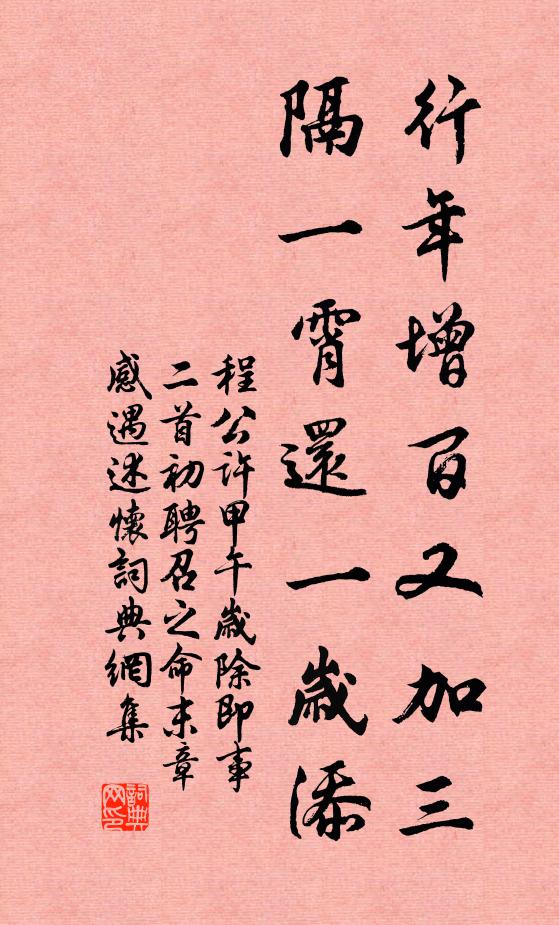 行年增百又加三
隔一霄還一歲添
程公許甲午歲除即事
二首初聘召之命末章
感遇述懷詞典網集
詞典
网印